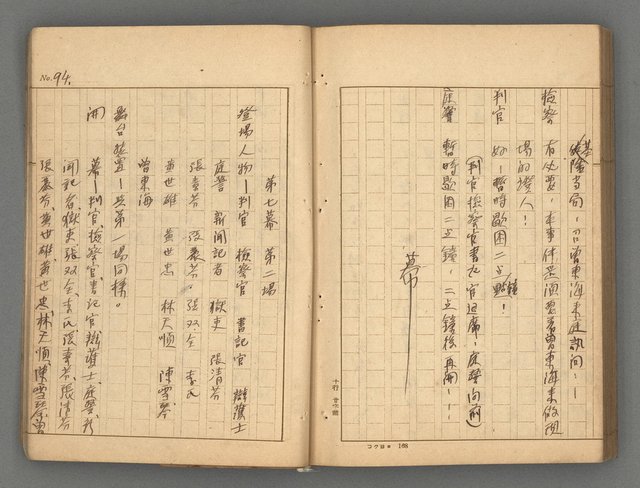 基隆当局，召曾東海來庭訊问：—
檢察 有必要，本事件是須要着曾東海來做現
場的證人！
判官 好—暫時歇困二点鐘，
（判官檢察官書記官退席，庭警向前）
庭警 暫時歇困二点鐘，二点鐘後再開！—
幕
十行 廿五字詰
コクヨ 168
No. 94.
第七幕 第二場
登場人物—判官 檢察官 書記官 辯護士
庭警 新聞記者 獄吏 張清芬
張素芬 張慕芬 張双全 李氏
黃世雄 黃世忠 林天順 陳雪琴
曾東海
舞台裝置—与第一場同樣。
開 幕—判官檢察官，書記官辯護士，庭警，新
聞記者，獄吏，張双全，李氏，張素芬，張清芬
張慕芬，黃世雄，黃世忠，林天順，陳雪琴，曾